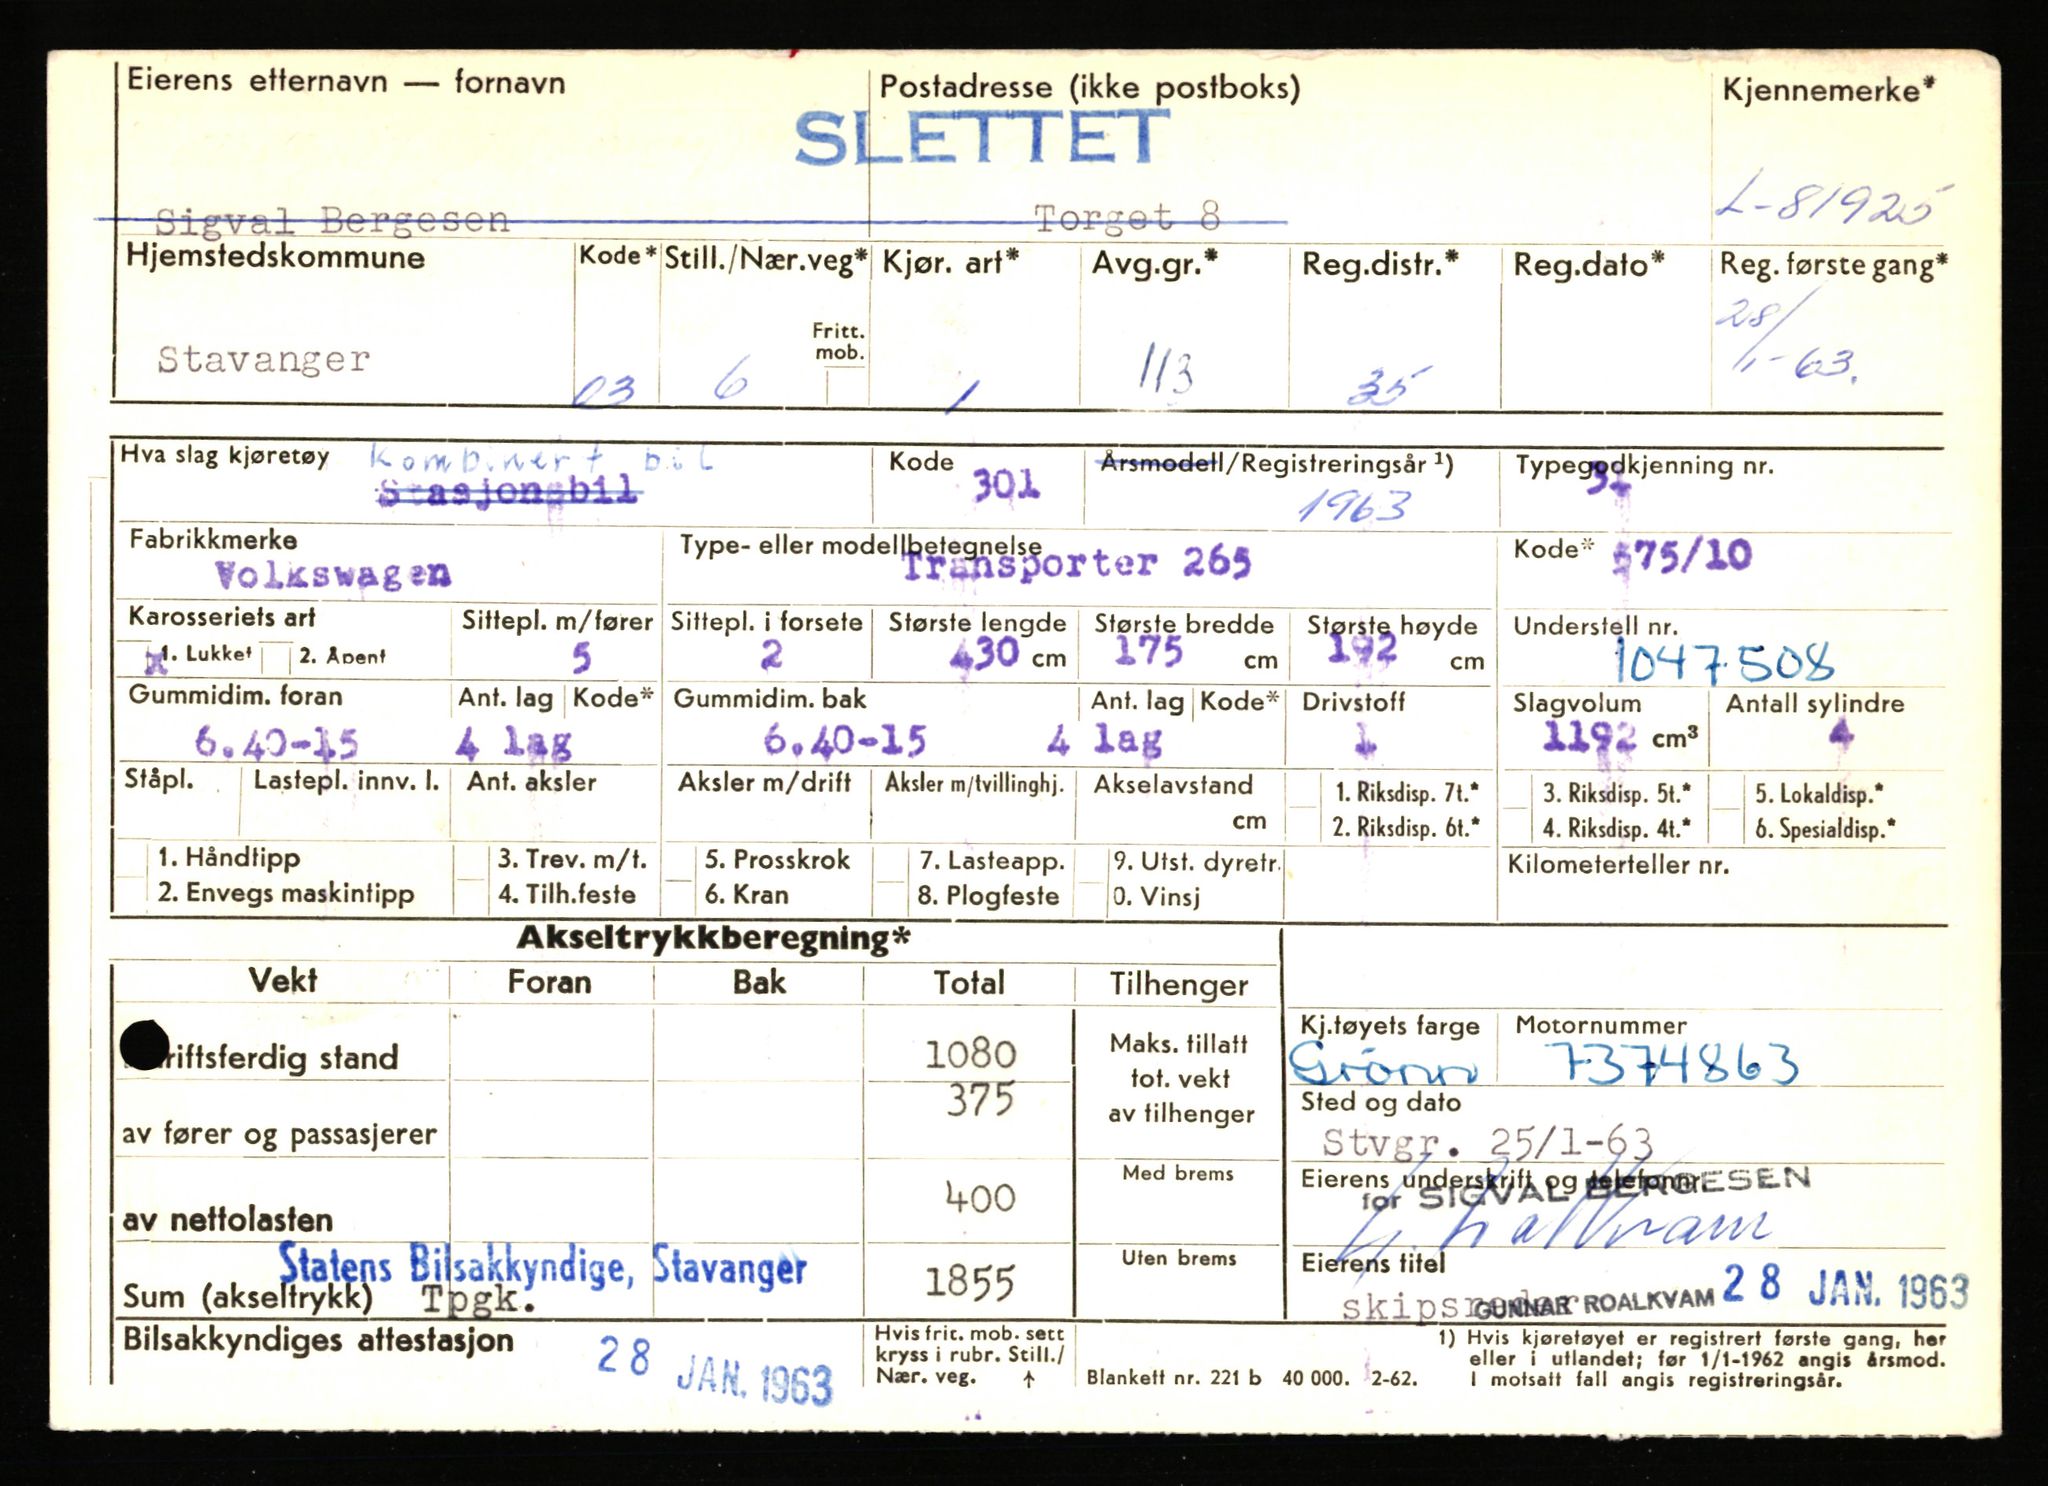 Eierens etternavn — fornavn Postadresse (ikke postboks) Kjennemerke*
SLETTET
Sigval Bergesen Torget 8 L-81925
Hjemstedskommune Kode* Still./Nær.veg* Kjør. art* Avg.gr.* Reg.distr.* Reg.dato* Reg. første gang*
Fritt. mob. 28/
Stavanger 03 6 1 113 35 1-63.
Hva slag kjøretøy Kombinert bil Kode Årsmodell/Registreringsår ¹) Typegodkjenning nr.
Stasjonsbil 301 1963 31
Fabrikkmerke Type- eller modellbetegnelse Kode*
Volkswagen Transporter 265 575/10
Karosseriets art Sittepl. m/fører Sittepl. i forsete Største lengde Største bredde Største høyde Understell nr.
x 1. Lukket 2. Åpent 5 2 430 cm 175 cm 192 cm 1047508
Gummidim. foran Ant. lag Kode* Gummidim. bak Ant. lag Kode* Drivstoff Slagvolum Antall sylindre
6.40-15 4 lag 6.40-15 4 lag 1 1192 cm³ 4
Ståpl. Lastepl. innv. l. Ant. aksler Aksler m/drift Aksler m/tvillinghj. Akselavstand 1. Riksdisp. 7t.* 3. Riksdisp. 5t.* 5. Lokaldisp.*
cm 2. Riksdisp. 6t.* 4. Riksdisp. 4t.* 6. Spesialdisp.*
1. Håndtipp 3. Trev. m/t. 5. Prosskrok 7. Lasteapp. 9. Utst. dyretr. Kilometerteller nr.
2. Envegs maskintipp 4. Tilh.feste 6. Kran 8. Plogfeste 0. Vinsj
Akseltrykkberegning*
Vekt Foran Bak Total Tilhenger
Kj.tøyets farge Motornummer
riftsferdig stand 1080 Maks. tillatt Grönn 7374863
375 tot. vekt Sted og dato
av fører og passasjerer av tilhenger Stvgr. 25/1-63
Med brems Eierens underskrift og telefonnr.
av nettolasten 400 for SIGVAL BERGESEN
Statens Bilsakkyndige, Stavanger Uten brems Eierens titel
Sum (akseltrykk) Tpgk. 1855 skipsreder GUNNAR ROALKVAM 28 JAN. 1963
Bilsakkyndiges attestasjon 28 JAN. 1963
Hvis frit. mob. sett
kryss i rubr. Still./
Nær. veg. ↑
Blankett nr. 221 b 40 000. 2-62.
1) Hvis kjøretøyet er registrert første gang, her
eller i utlandet; før 1/1-1962 angis årsmod.
I motsatt fall angis registreringsår.